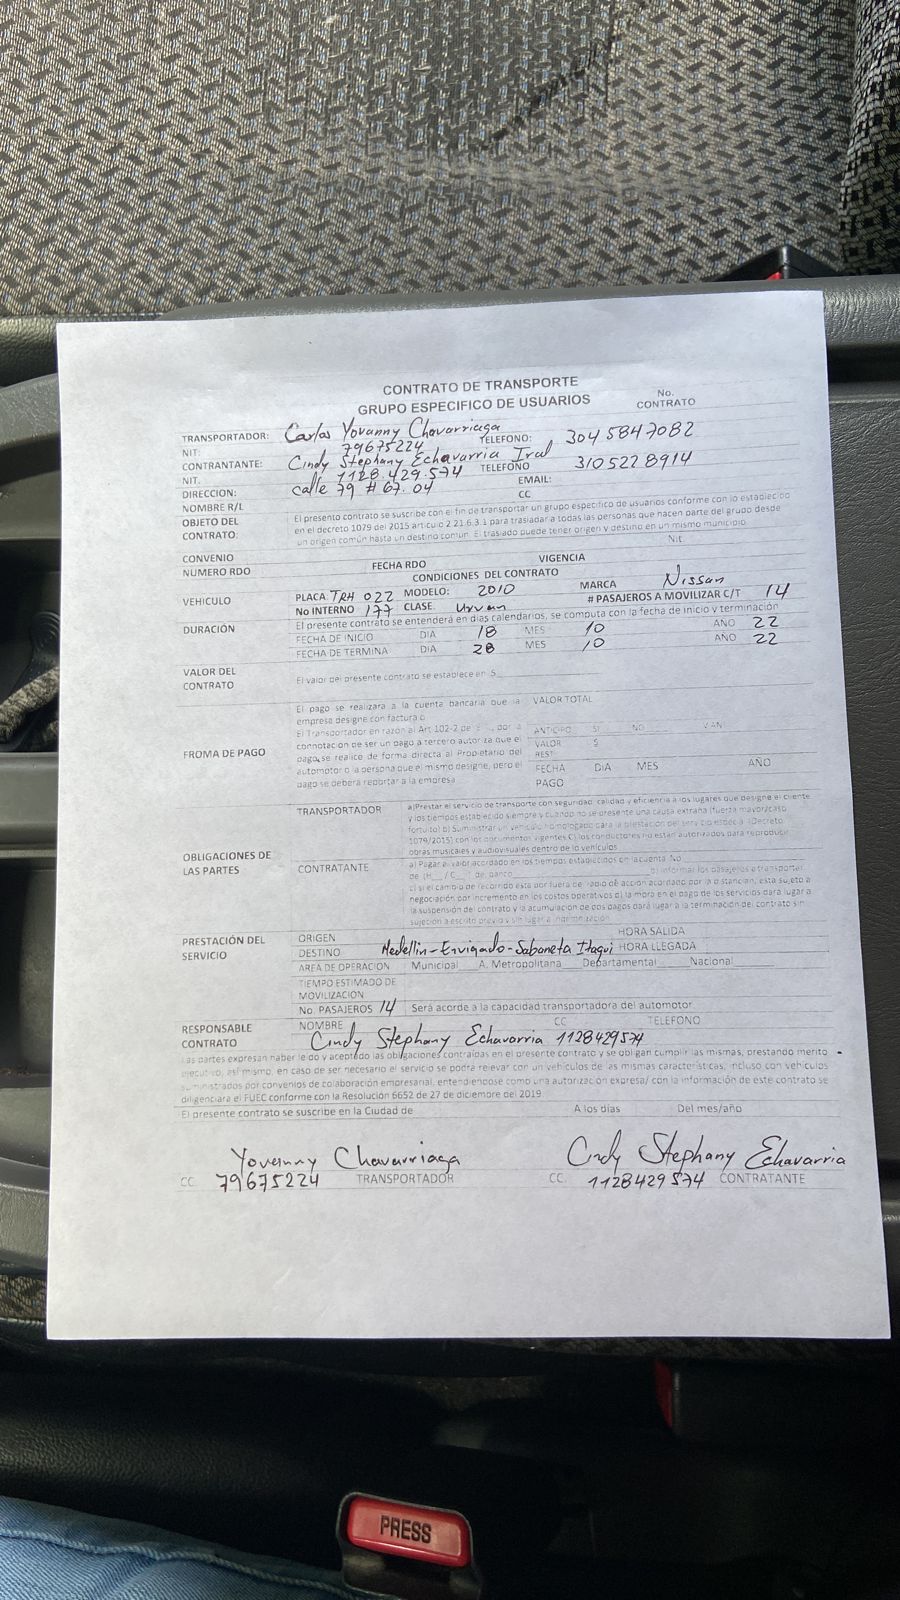 CONTRATO DE TRANSPORTE
GRUPO ESPECIFICO DE USUARIOS
No. CONTRATO
TRANSPORTADOR: Carlos Yovanny Chavarriaga TELEFONO: 3045847082
NIT: 79675224
CONTRANTANTE: Cindy Stephany Echavarria Iral TELEFONO 3105228914
NIT. 1128.429.574
DIRECCION: calle 79 # 67.04 EMAIL:
NOMBRE R/L CC
OBJETO DEL CONTRATO: El presente contrato se suscribe con el fin de transportar un grupo especifico de usuarios conforme con lo establecido
en el decreto 1079 del 2015 articulo 2.21.6.3.1 para trasladar a todas las personas que hacen parte del grupo desde
un origen común hasta un destino común. El traslado puede tener origen y destino en un mismo municipio.
CONVENIO Nit.
NUMERO RDO FECHA RDO VIGENCIA
CONDICIONES DEL CONTRATO
VEHICULO PLACA: TRH 022 MODELO: 2010 MARCA Nissan
No INTERNO 177 CLASE: Urvan # PASAJEROS A MOVILIZAR C/T 14
DURACIÓN El presente contrato se entenderá en días calendarios, se computa con la fecha de inicio y terminación
FECHA DE INICIO DIA 18 MES 10 AÑO 22
FECHA DE TERMINA DIA 28 MES 10 AÑO 22
VALOR DEL CONTRATO El valor del presente contrato se establece en $
FROMA DE PAGO El pago se realizara a la cuenta bancaria que la
empresa designe con factura o
El Transportador en razón al Art 102-2 del por a
connotación de ser un pago a tercero autoriza que el
pago se realice de forma directa al Propietario del
automotor o la persona que el mismo designe, pero el
pago se deberá reportar a la empresa
VALOR TOTAL
ANTICIPO SI NO
VALOR $
REST
FECHA PAGO DIA MES AÑO
OBLIGACIONES DE LAS PARTES
TRANSPORTADOR a)Prestar el servicio de transporte con seguridad, calidad y eficiencia a los lugares que designe el cliente
y los tiempos establecido siempre y cuando no se presente una causa extraña (fuerza mayor/caso
fortuito) b) Suministrar un vehículo homologado para la prestación del servicio especial (Decreto
1079/2015) con los documentos vigentes C) los conductores no están autorizados para reproducir
obras musicales y audiovisuales dentro de lo vehículos
CONTRATANTE a) Pagar el valor acordado en los tiempos establecidos en la cuenta No
de banco b) informar los pasajeros a transportar
c) si el cambio de recorrido esta por fuera de radio de acción acordado por la distancian, esta sujeto a
negociación por incremento en los costos operativos d) la mora en el pago de los servicios dará lugar a
la suspensión del contrato y la acumulación de dos pagos dará lugar a la terminación del contrato sin
sujeción a escrito previo y sin lugar a indemnización
PRESTACIÓN DEL SERVICIO ORIGEN HORA SALIDA
DESTINO Medellin-Envigado-Sabaneta Itagui HORA LLEGADA
AREA DE OPERACION Municipal A. Metropolitana Departamental Nacional
TIEMPO ESTIMADO DE MOVILIZACIÓN
No. PASAJEROS 14 Será acorde a la capacidad transportadora del automotor
RESPONSABLE CONTRATO NOMBRE CC TELEFONO
Cindy Stephany Echavarria 1128429574
Las partes expresan haber leído y aceptado las obligaciones contraídas en el presente contrato y se obligan cumplir las mismas, prestando merito
ejecutivo, así mismo, en caso de ser necesario el servicio se podrá relevar con un vehículos de las mismas características, incluso con vehículos
suministrados por convenios de colaboración empresarial, entendiéndose como una autorización expresa/ con la información de este contrato se
diligenciara el FUEC conforme con la Resolución 6652 de 27 de diciembre del 2019
El presente contrato se suscribe en la Ciudad de A los días Del mes/año
Yovanny Chavarriaga Cindy Stephany Echavarria
CC 79675224 TRANSPORTADOR CC. 1128429574 CONTRATANTE
PRESS